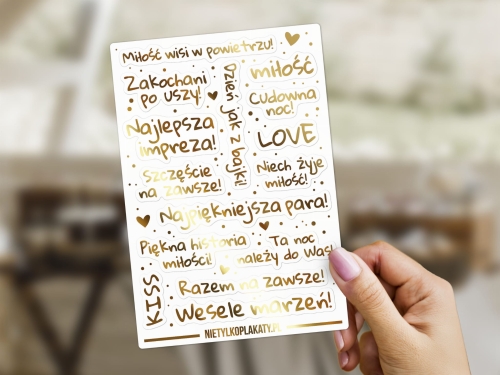 Miłość wisi w powietrzu!
Zakochani
po uszy!
Dzień jak z bajki!
miłość
Cudowna
noc!
Najlepsza
impreza!
LOVE
Szczęście
na zawsze!
Niech żyje
miłość!
Najpiękniejsza para!
Piękna historia
miłości!
Ta noc
należy do Was!
KISS
Razem na zawsze!
Wesele marzeń!
NIETYLKOPLAKATY.PL